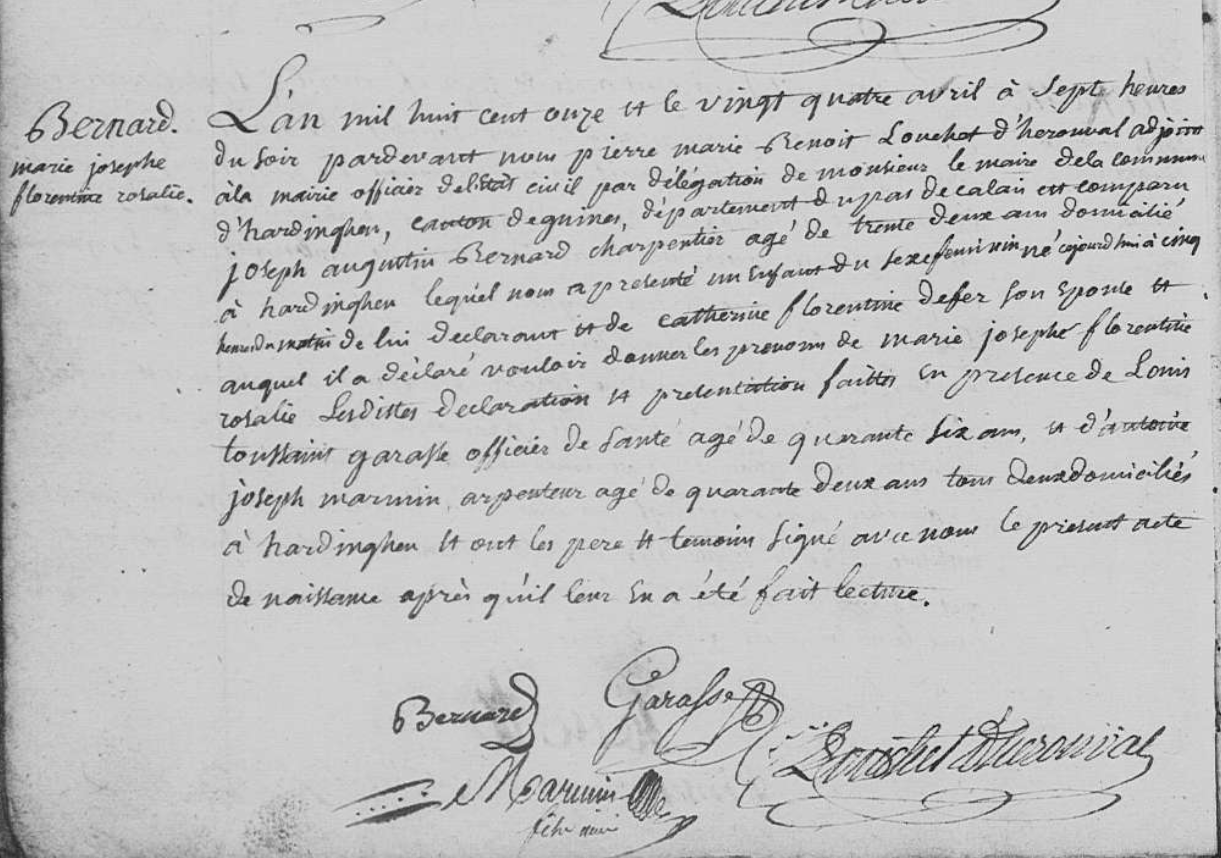 Bernard.
marie josephe
florentine rosalie.
L'an mil huit cent onze et le vingt quatre avril à sept heures
du soir pardevant nous pierre marie Benoit Louchet d'herouval adjoint
à la mairie officier deletat civil par délégation de monsieur le maire dela commune
d'hardinghen, canton deguines, département du pas de calais est comparu
joseph augustin Bernard charpentier agé de trente deux ans domicilié
à hardinghen lequel nous a presenté un Enfant du sexe feminin né cejourd'hui à cinq
heures du matin de lui declarant et de catherine florentine defer son Epouse et
auquel il a déclaré vouloir donner les prenoms de marie josephe florentine
rosalie Lesdittes declaration et presentation faittes En presence de Louis
toussaint garasse officier de santé agé de quarante six ans, et d'antoine
joseph marmin arpenteur agé de quarante deux ans tous deux domiciliés
à hardinghen et ont les pere et temoins signé avec nous le present acte
de naissance après qu'il leur En a été fait lecture.
Bernard
Garasse
Louchet d'herouval
Marmin